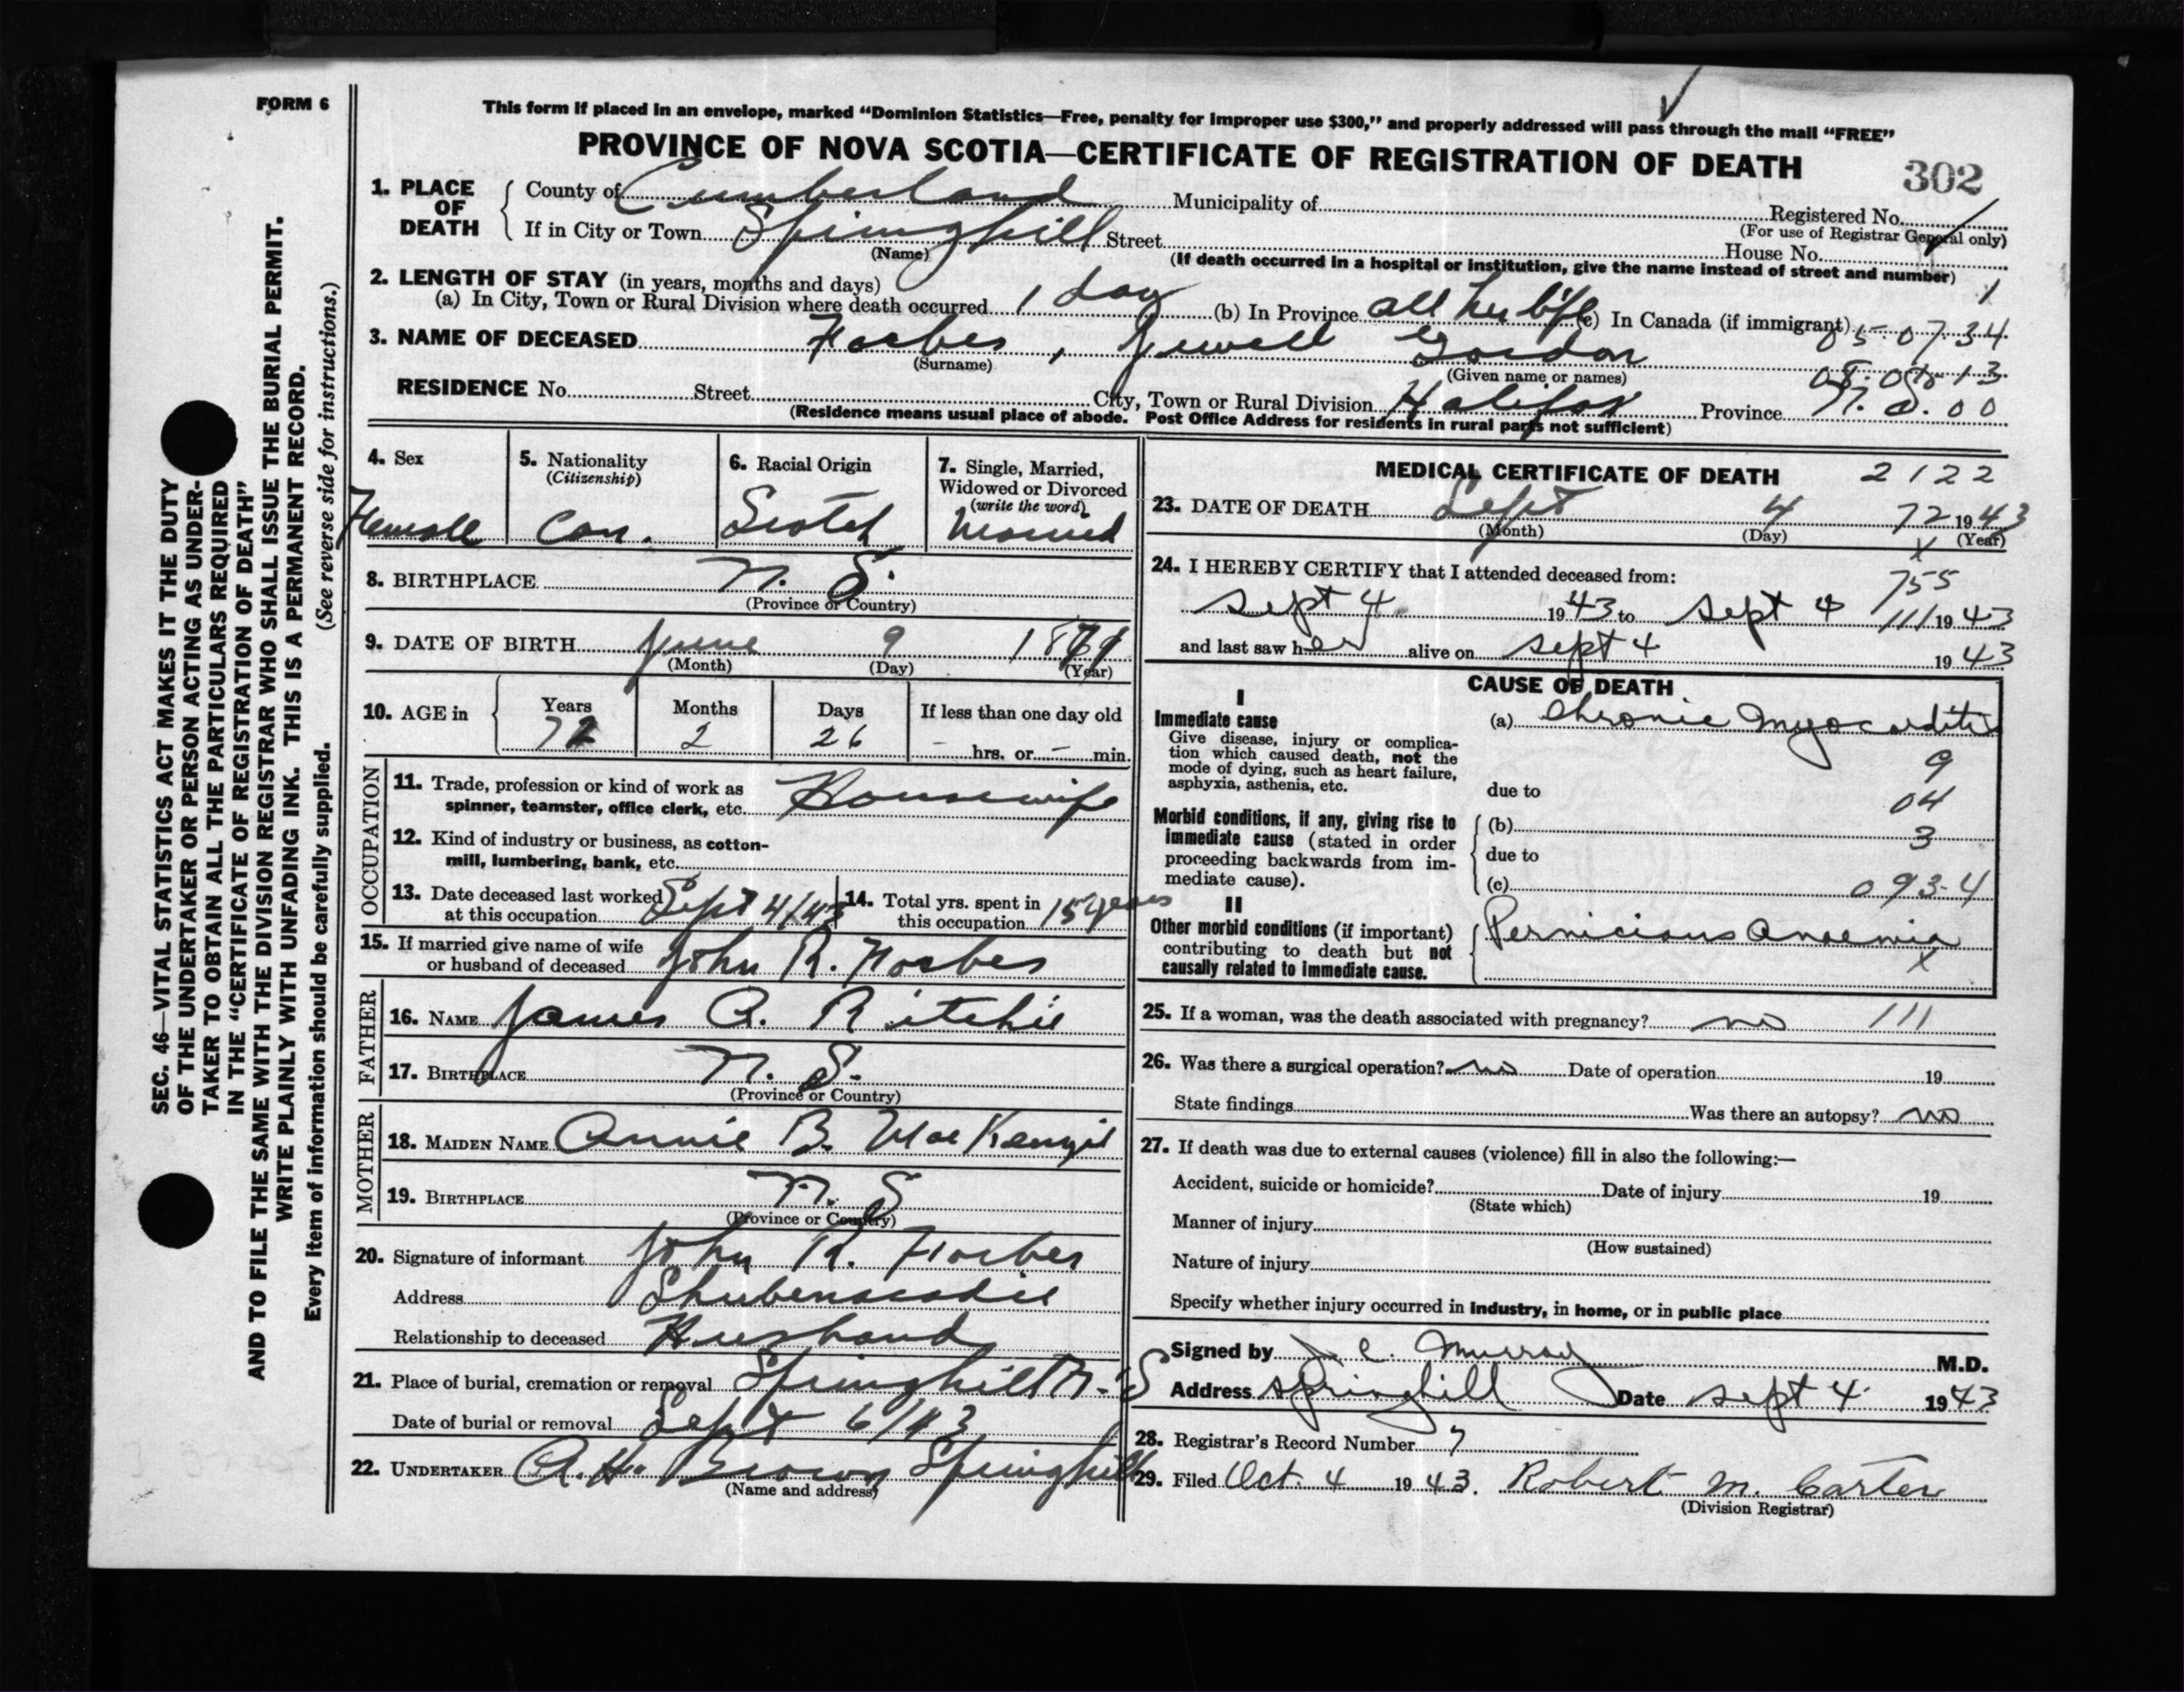 FORM 6
This form if placed in an envelope, marked "Dominion Statistics—Free, penalty for improper use $300," and properly addressed will pass through the mail "FREE"
PROVINCE OF NOVA SCOTIA—CERTIFICATE OF REGISTRATION OF DEATH
302
1. PLACE OF DEATH County of Cumberland Municipality of Registered No.
(For use of Registrar General only)
If in City or Town Springhill Street House No.
(Name) (If death occurred in a hospital or institution, give the name instead of street and number)
2. LENGTH OF STAY (in years, months and days) 1
(a) In City, Town or Rural Division where death occurred 1 day (b) In Province all her life (c) In Canada (if immigrant) 05-07-34
3. NAME OF DECEASED Forbes, Jewell Gordon
(Surname) (Given name or names)
RESIDENCE No. Street City, Town or Rural Division Halifax Province N.S. 00
(Residence means usual place of abode. Post Office Address for residents in rural parts not sufficient)
4. Sex 5. Nationality 6. Racial Origin 7. Single, Married,
(Citizenship) Widowed or Divorced
(write the word)
Female Can. Scotch Married
8. BIRTHPLACE N. S.
(Province or Country)
9. DATE OF BIRTH June 9 1871
(Month) (Day) (Year)
10. AGE in Years Months Days If less than one day old
72 2 26 – hrs. or – min.
OCCUPATION
11. Trade, profession or kind of work as
spinner, teamster, office clerk, etc. Housewife
12. Kind of industry or business, as cotton-
mill, lumbering, bank, etc.
13. Date deceased last worked
at this occupation Sept 4/43
14. Total yrs. spent in
this occupation 15 years
15. If married give name of wife
or husband of deceased John R. Forbes
FATHER
16. NAME James A. Ritchie
17. BIRTHPLACE N. S.
(Province or Country)
MOTHER
18. MAIDEN NAME Annie B. MacKenzie
19. BIRTHPLACE N. S
(Province or Country)
20. Signature of informant John R. Forbes
Address Shubenacadie
Relationship to deceased Husband
21. Place of burial, cremation or removal Springhill N-S
Date of burial or removal Sept 6/43
22. UNDERTAKER A. H. Brown Springhill
(Name and address)
MEDICAL CERTIFICATE OF DEATH 2122
23. DATE OF DEATH Sept 4 72 1943
(Month) (Day) (Year)
x
24. I HEREBY CERTIFY that I attended deceased from: 755
sept 4 1943 to sept 4 111 1943
and last saw her alive on sept 4 1943
CAUSE OF DEATH
I
Immediate cause
Give disease, injury or complica-
tion which caused death, not the
mode of dying, such as heart failure,
asphyxia, asthenia, etc.
(a) Chronic Myocarditis
9
due to 04
Morbid conditions, if any, giving rise to
immediate cause (stated in order
proceeding backwards from im-
mediate cause).
(b) 3
due to
(c) 093-4
II
Other morbid conditions (if important)
contributing to death but not
causally related to immediate cause.
Pernicious Anaemia
x
25. If a woman, was the death associated with pregnancy? no 111
26. Was there a surgical operation? no Date of operation 19
State findings Was there an autopsy? no
27. If death was due to external causes (violence) fill in also the following:—
Accident, suicide or homicide? Date of injury 19
(State which)
Manner of injury
(How sustained)
Nature of injury
Specify whether injury occurred in industry, in home, or in public place
Signed by J. C. Murray M.D.
Address Springhill Date sept 4 1943
28. Registrar's Record Number 7
29. Filed Oct. 4 1943. Robert M. Carter
(Division Registrar)
SEC. 46—VITAL STATISTICS ACT MAKES IT THE DUTY
OF THE UNDERTAKER OR PERSON ACTING AS UNDER-
TAKER TO OBTAIN ALL THE PARTICULARS REQUIRED
IN THE "CERTIFICATE OF REGISTRATION OF DEATH"
AND TO FILE THE SAME WITH THE DIVISION REGISTRAR WHO SHALL ISSUE THE BURIAL PERMIT.
WRITE PLAINLY WITH UNFADING INK. THIS IS A PERMANENT RECORD.
Every item of information should be carefully supplied. (See reverse side for instructions.)